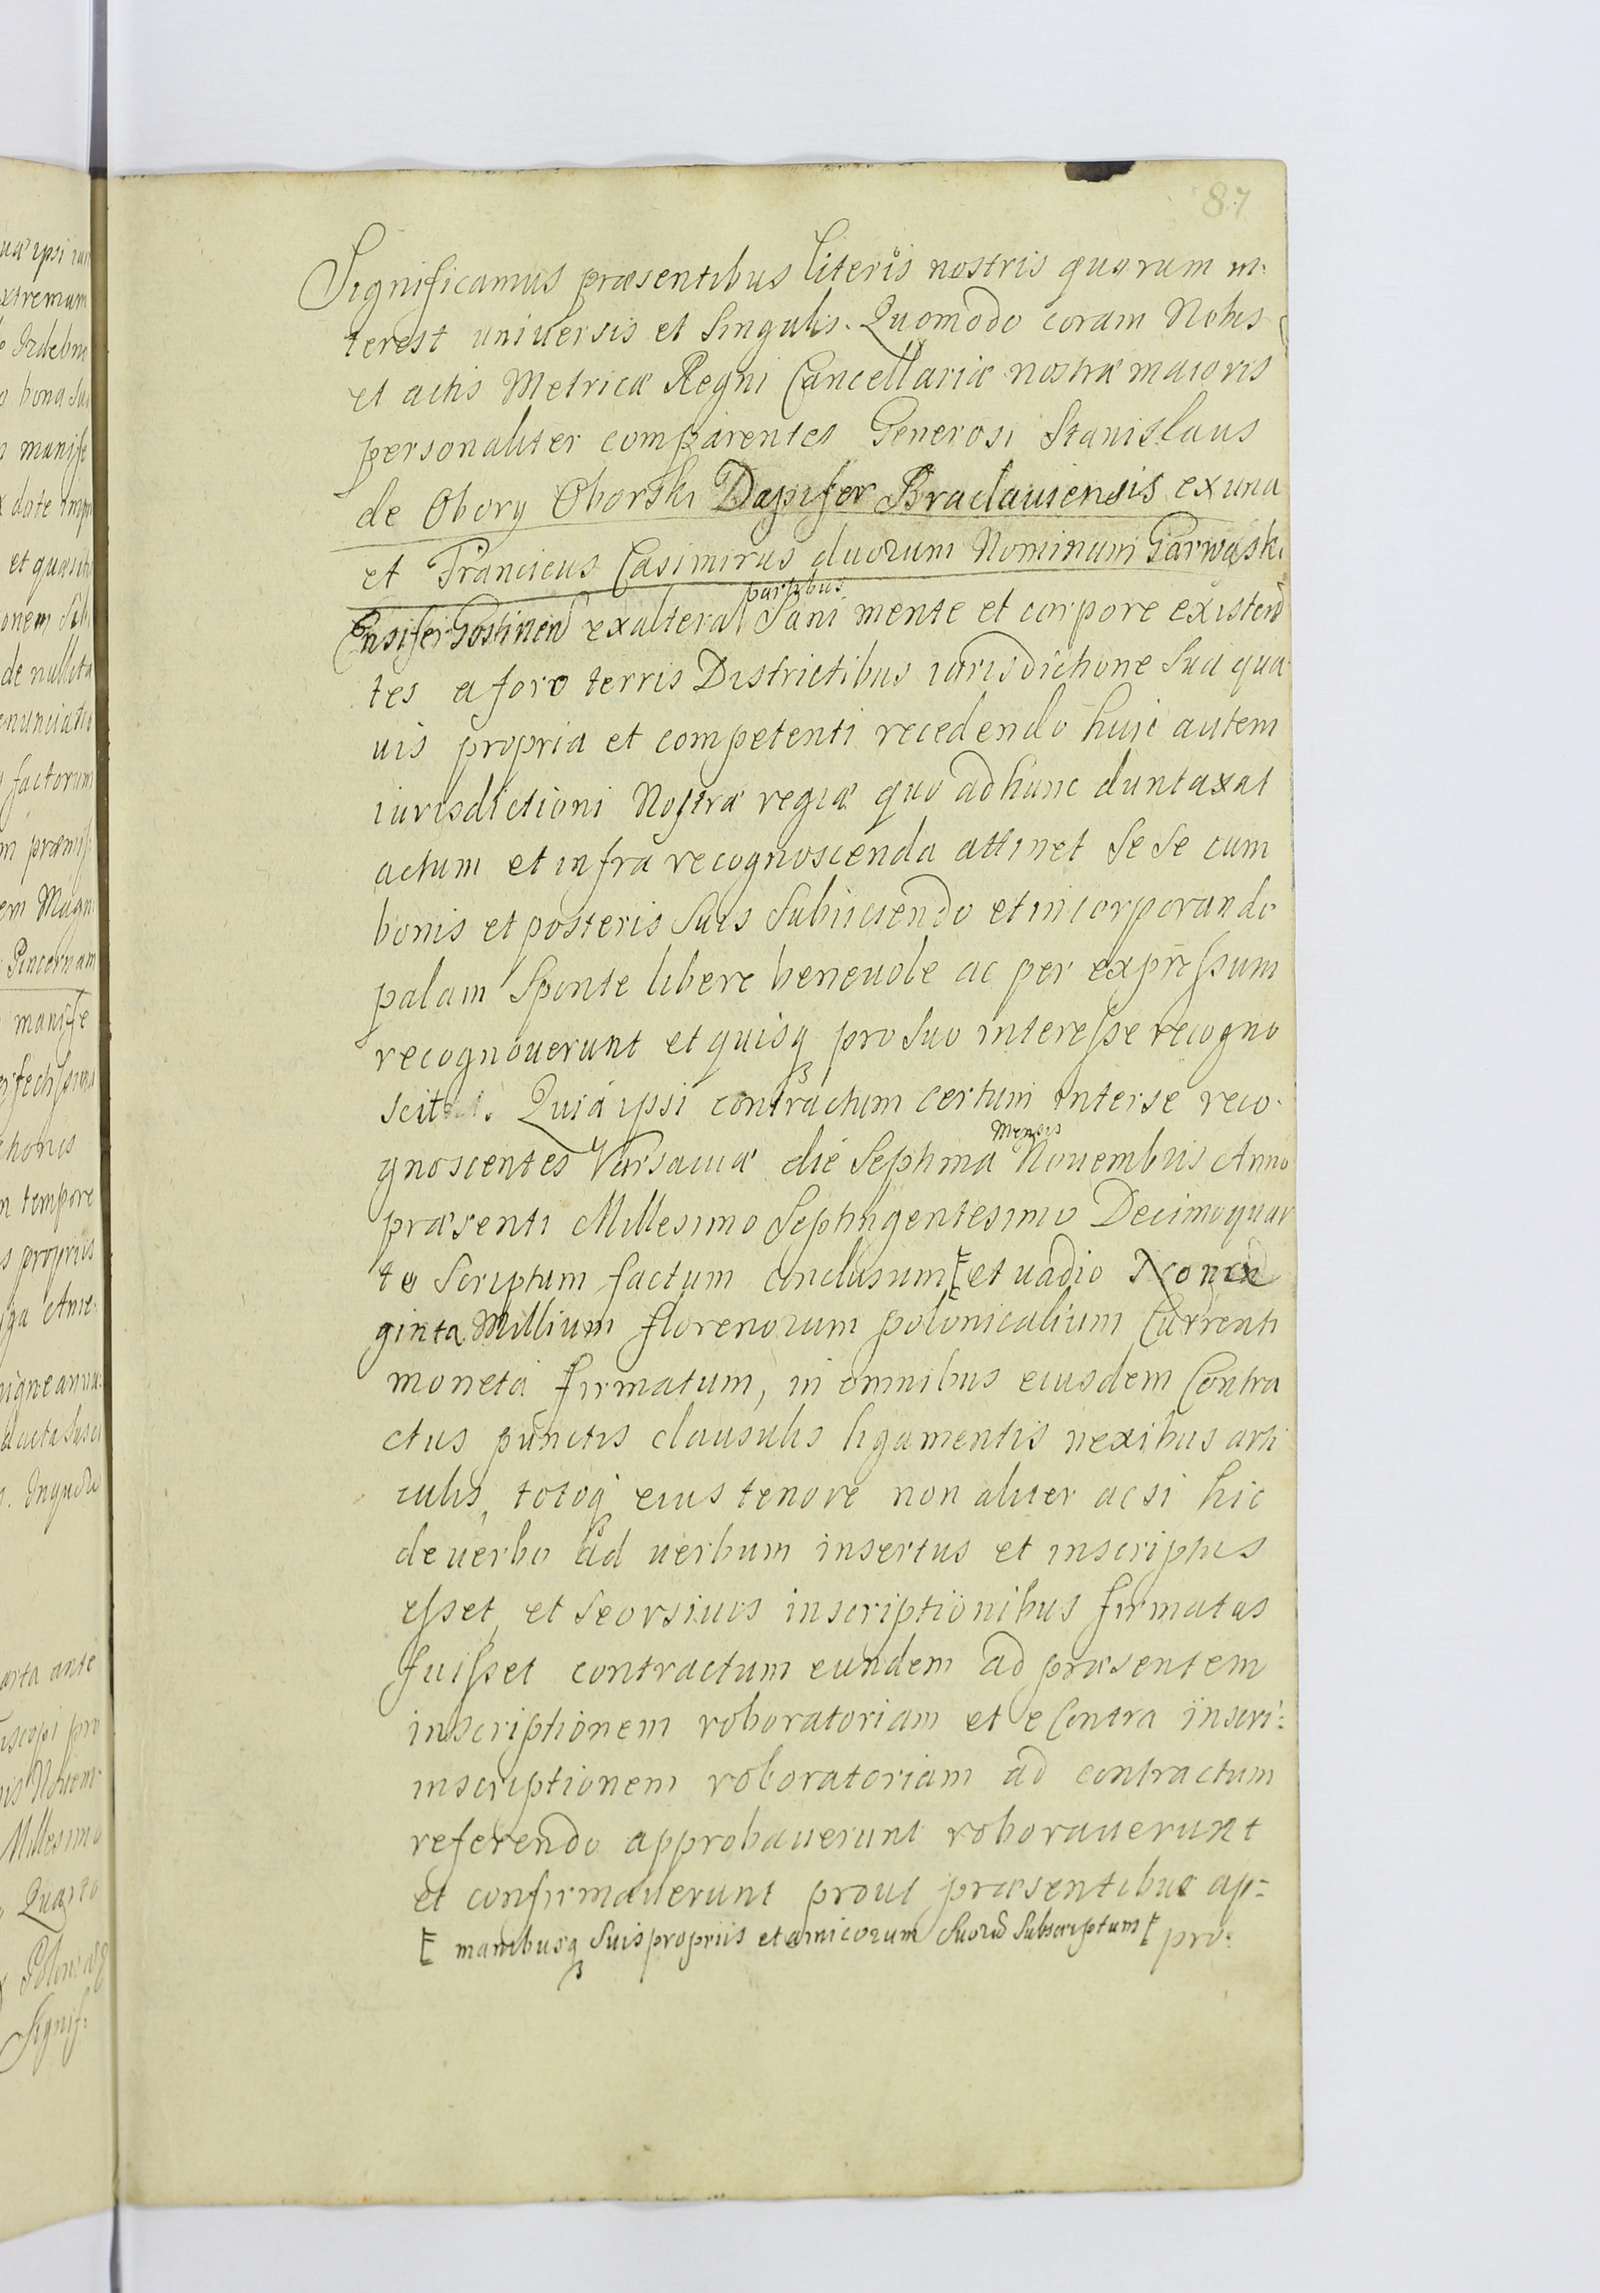 87
Significamus præsentibus literis nostris quorum in:
terest universis et Singulis. Quomodo coram Nobis
et actis Metricæ Regni Cancellariæ nostræ maioris
personaliter comparentes Generosi Stanislaus
de Obory Oborski Dapifer Braclauiensis ex una
et Franciscus Casimirus duorum Nominum Garwaski
partibus
Ensifer Gostinen exaltera Sani mente et corpore existen
tes a foro terris Districtibus iurisdictione Sua qua
uis propria et competenti recedendo huic autem
iurisdictioni Nostræ regiæ quo ad hunc duntaxat
actum et infra recognoscenda attinet Se Se cum
bonis et posteris Suis Subiiciendo et incorporando
palam Sponte libere beneuole ac per expressum
recognouerunt et quisq3 pro Suo interesse recogno
scit. Quia ipsi contractum certum inter se reco:
Mensis
gnoscentes Varsauiæ die Septima Nouembris Anno
præsenti Millesimo Septingentesimo Decimoquar
to Scriptum factum conclusum [ et uadio Nona
ginta Millium florenorum polonicalium Currenti
moneta firmatum, in omnibus eiusdem Contra
ctus punctis clausulis ligamentis nexibus arti
culis, totoq3 eius tenore non aliter ac si hic
de uerbo ad uerbum insertus et inscriptus
esset, et Seorsiuis inscriptionibus firmatus
fuisset contractum eundem ad præsentem
inscriptionem roboratoriam et e Contra inscri:
inscriptionem roboratoriam ad contractum
referendo approbauerunt roborauerunt
et confirmauerunt prout præsentibus ap=
[ manibusq3 Suis propriis et amicorum Suorū Subscriptum [ pro: